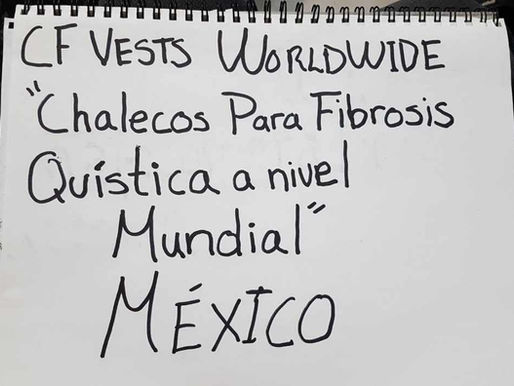 CF VESTS WORLDWIDE
"Chalecos Para Fibrosis
Quística a nivel
Mundial"
MÉXICO